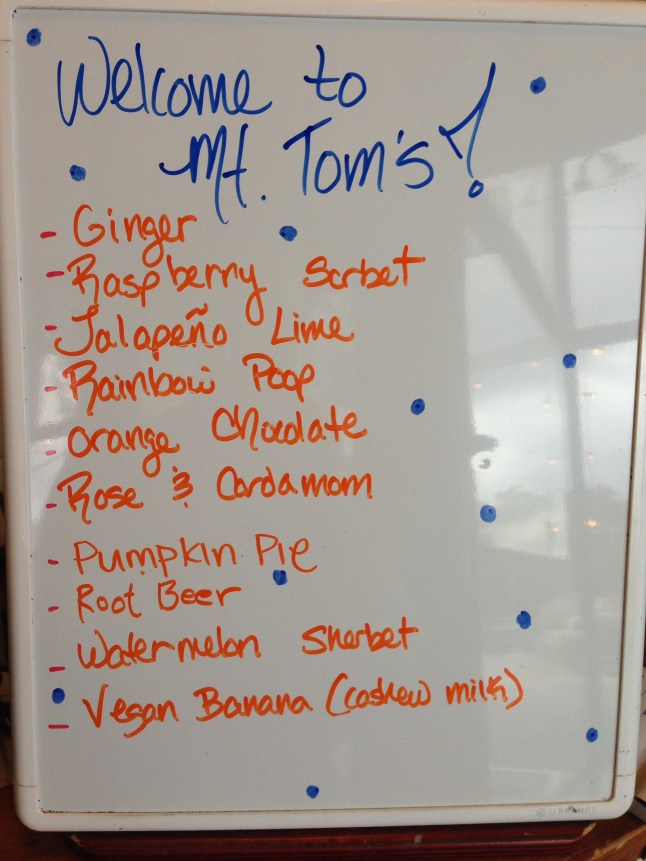 Welcome to
Mt. Tom's!
- Ginger
- Raspberry Sorbet
- Jalapeño Lime
- Rainbow Poop
- Orange Chocolate
- Rose & Cardamom
- Pumpkin Pie
- Root Beer
- Watermelon Sherbet
- Vegan Banana (cashew milk)
-